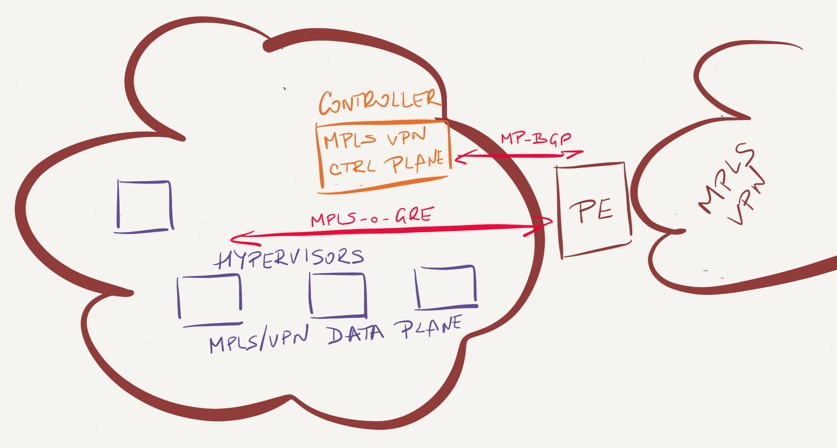 CONTROLLER
MPLS VPN
CTRL PLANE
MP-BGP
PE
MPLS
VPN
MPLS-o-GRE
HYPERVISORS
MPLS/VPN DATA PLANE